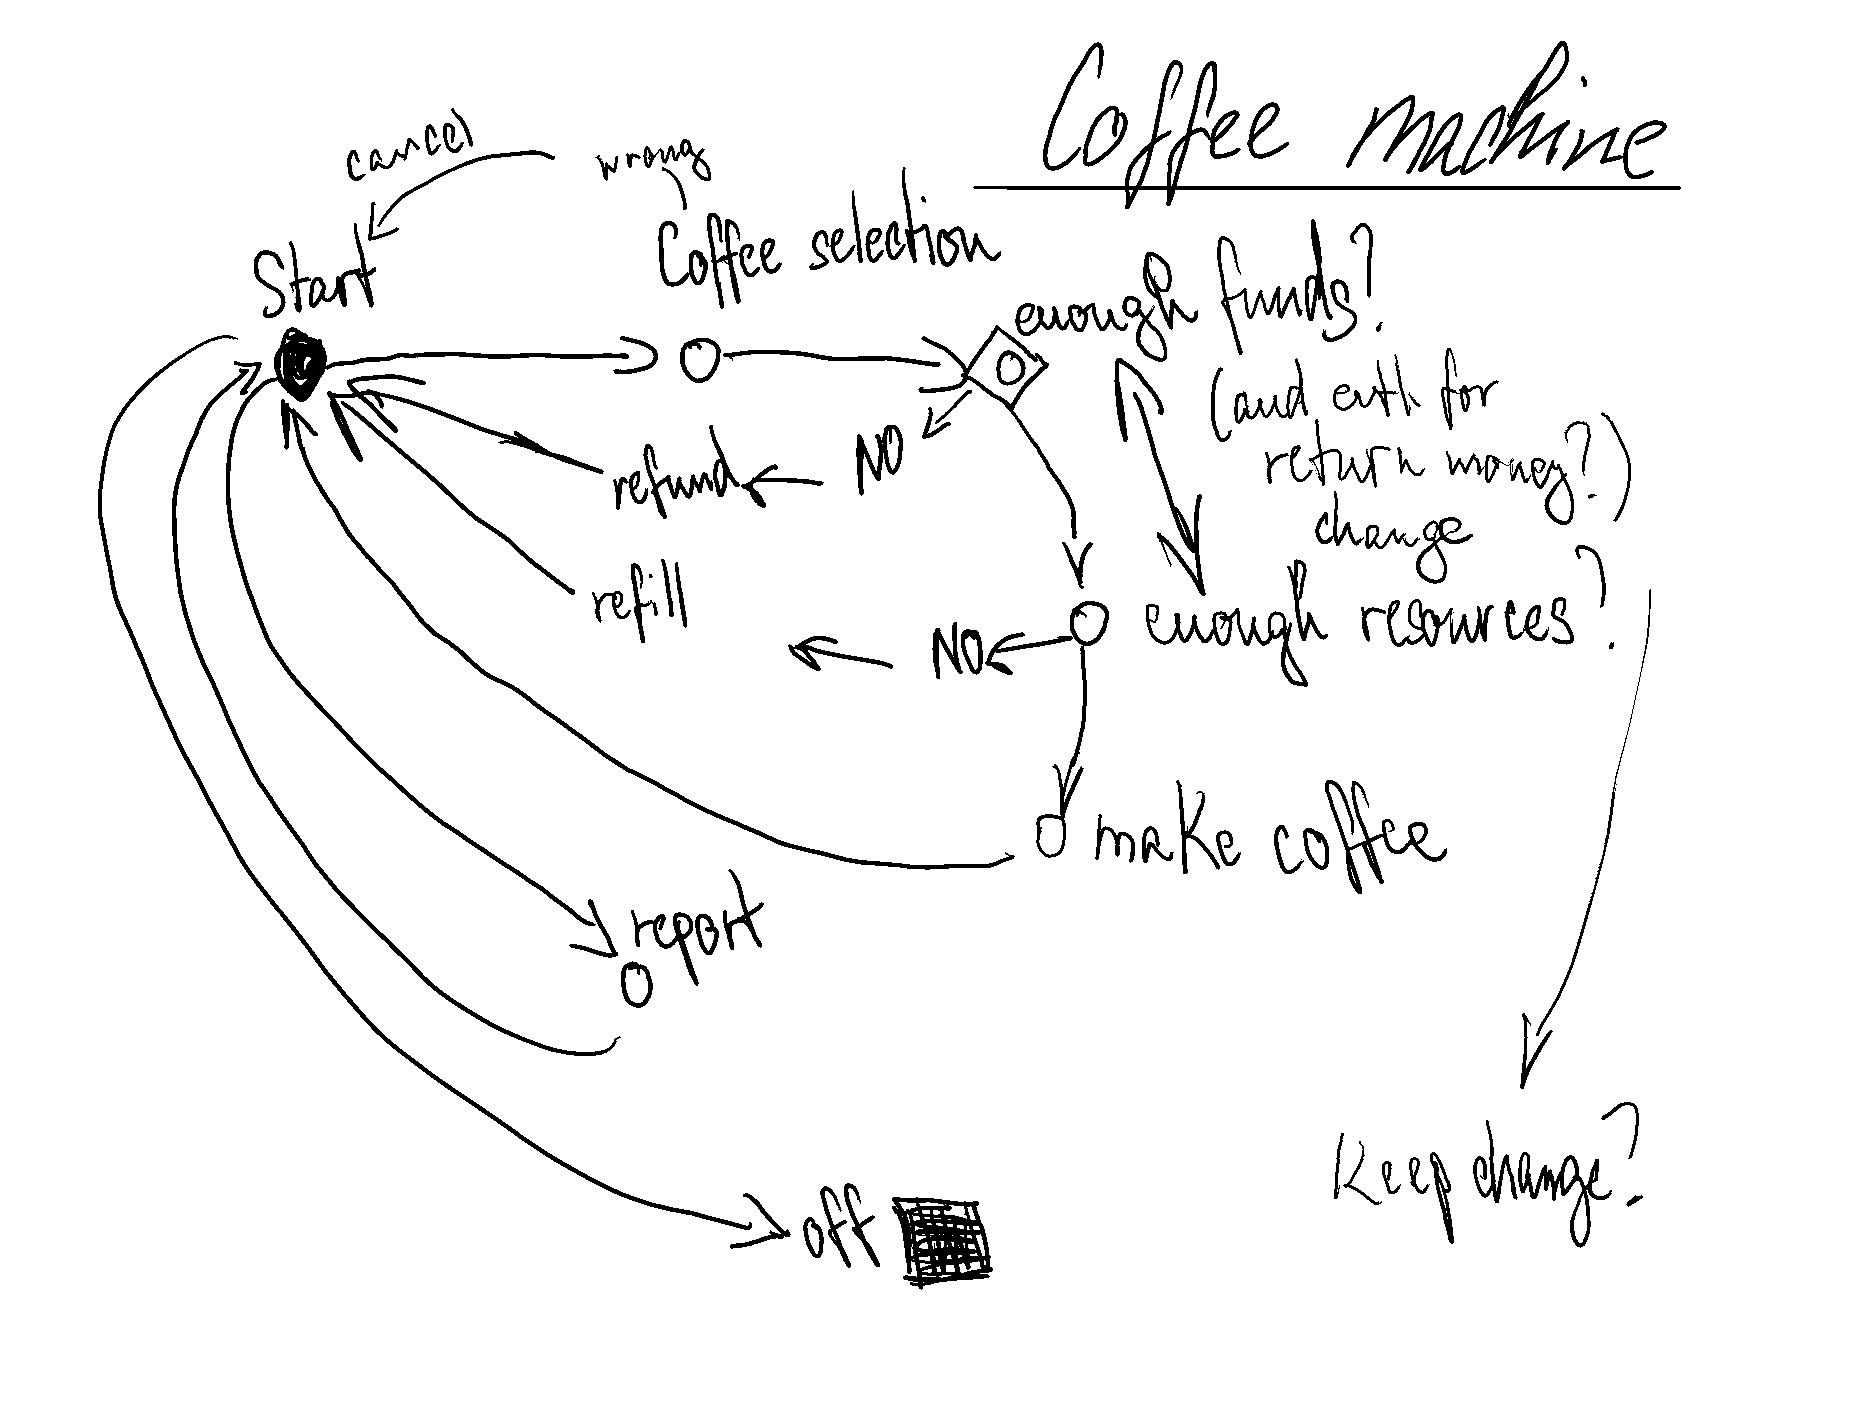 Coffee machine
cancel
wrong
Start
Coffee selection
enough funds?
(and enth for
return money?)
change
NO
refund
refill
enough resources?
NO
make coffee
report
Keep change?
off